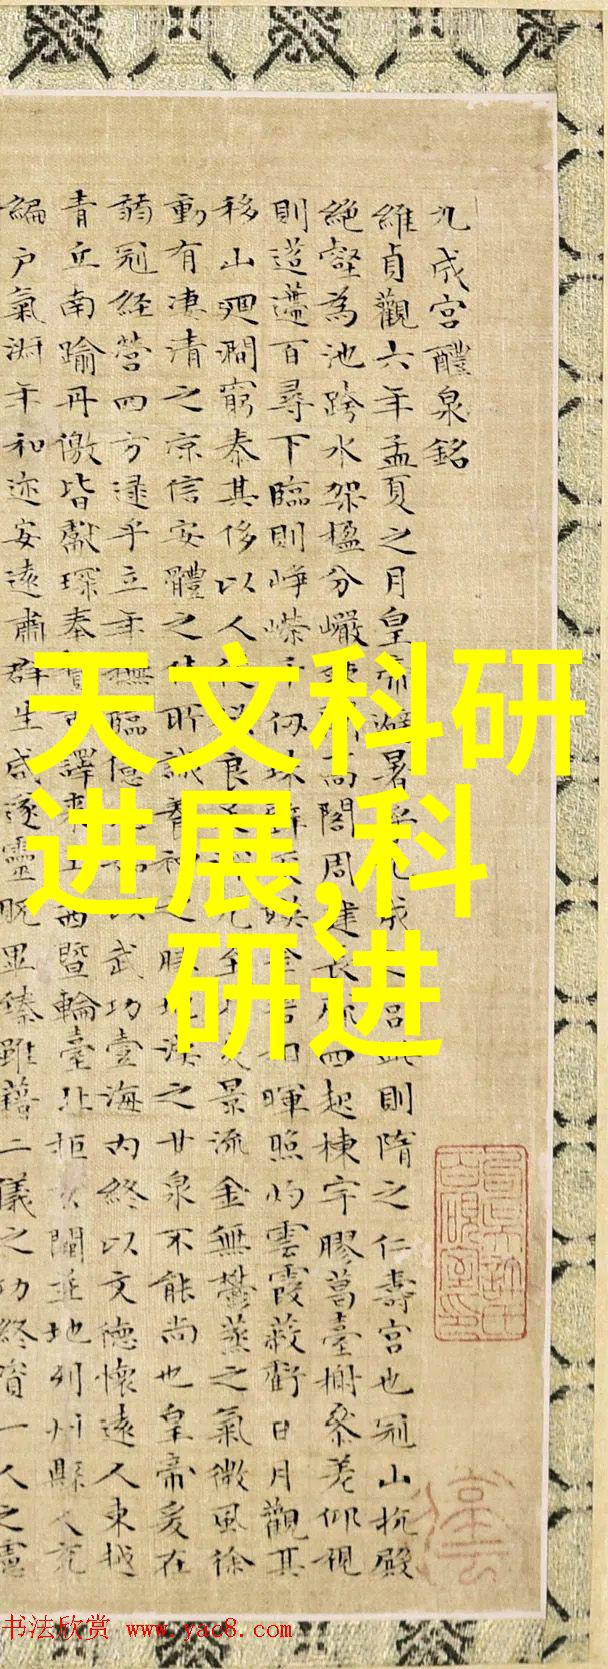 九成宮醴泉銘
維貞觀六年孟夏之月皇帝避暑乎九成之宮此則隋之仁壽宮也冠山抗殿
絕壑為池跨水架楹分巖竦闕高閣周建長廊四起棟宇膠葛臺榭參差仰視
則迢遰百尋下臨則崢嶸千仞珠璧交映金碧相暉照灼雲霞蔽虧日月觀其
移山迴澗窮泰其侈以人從欲良足深尤至於炎景流金無鬱蒸之氣微風徐
動有淒清之涼信安體之佳所誠養神之勝地漢之甘泉不能尚也皇帝爰在
弱冠經營四方逮乎立年撫臨億兆始以武功壹海內終以文德懷遠人東越
青丘南踰丹儌皆獻琛奉贄重譯來王西暨輪臺北拒玄闕並地列州縣人充
編戶氣淑年和迩安遠肅群生咸遂靈貺畢臻雖藉二儀之功終資一人之慮
天文科研
进展,科
研进
书法欣赏 www.yac8.com